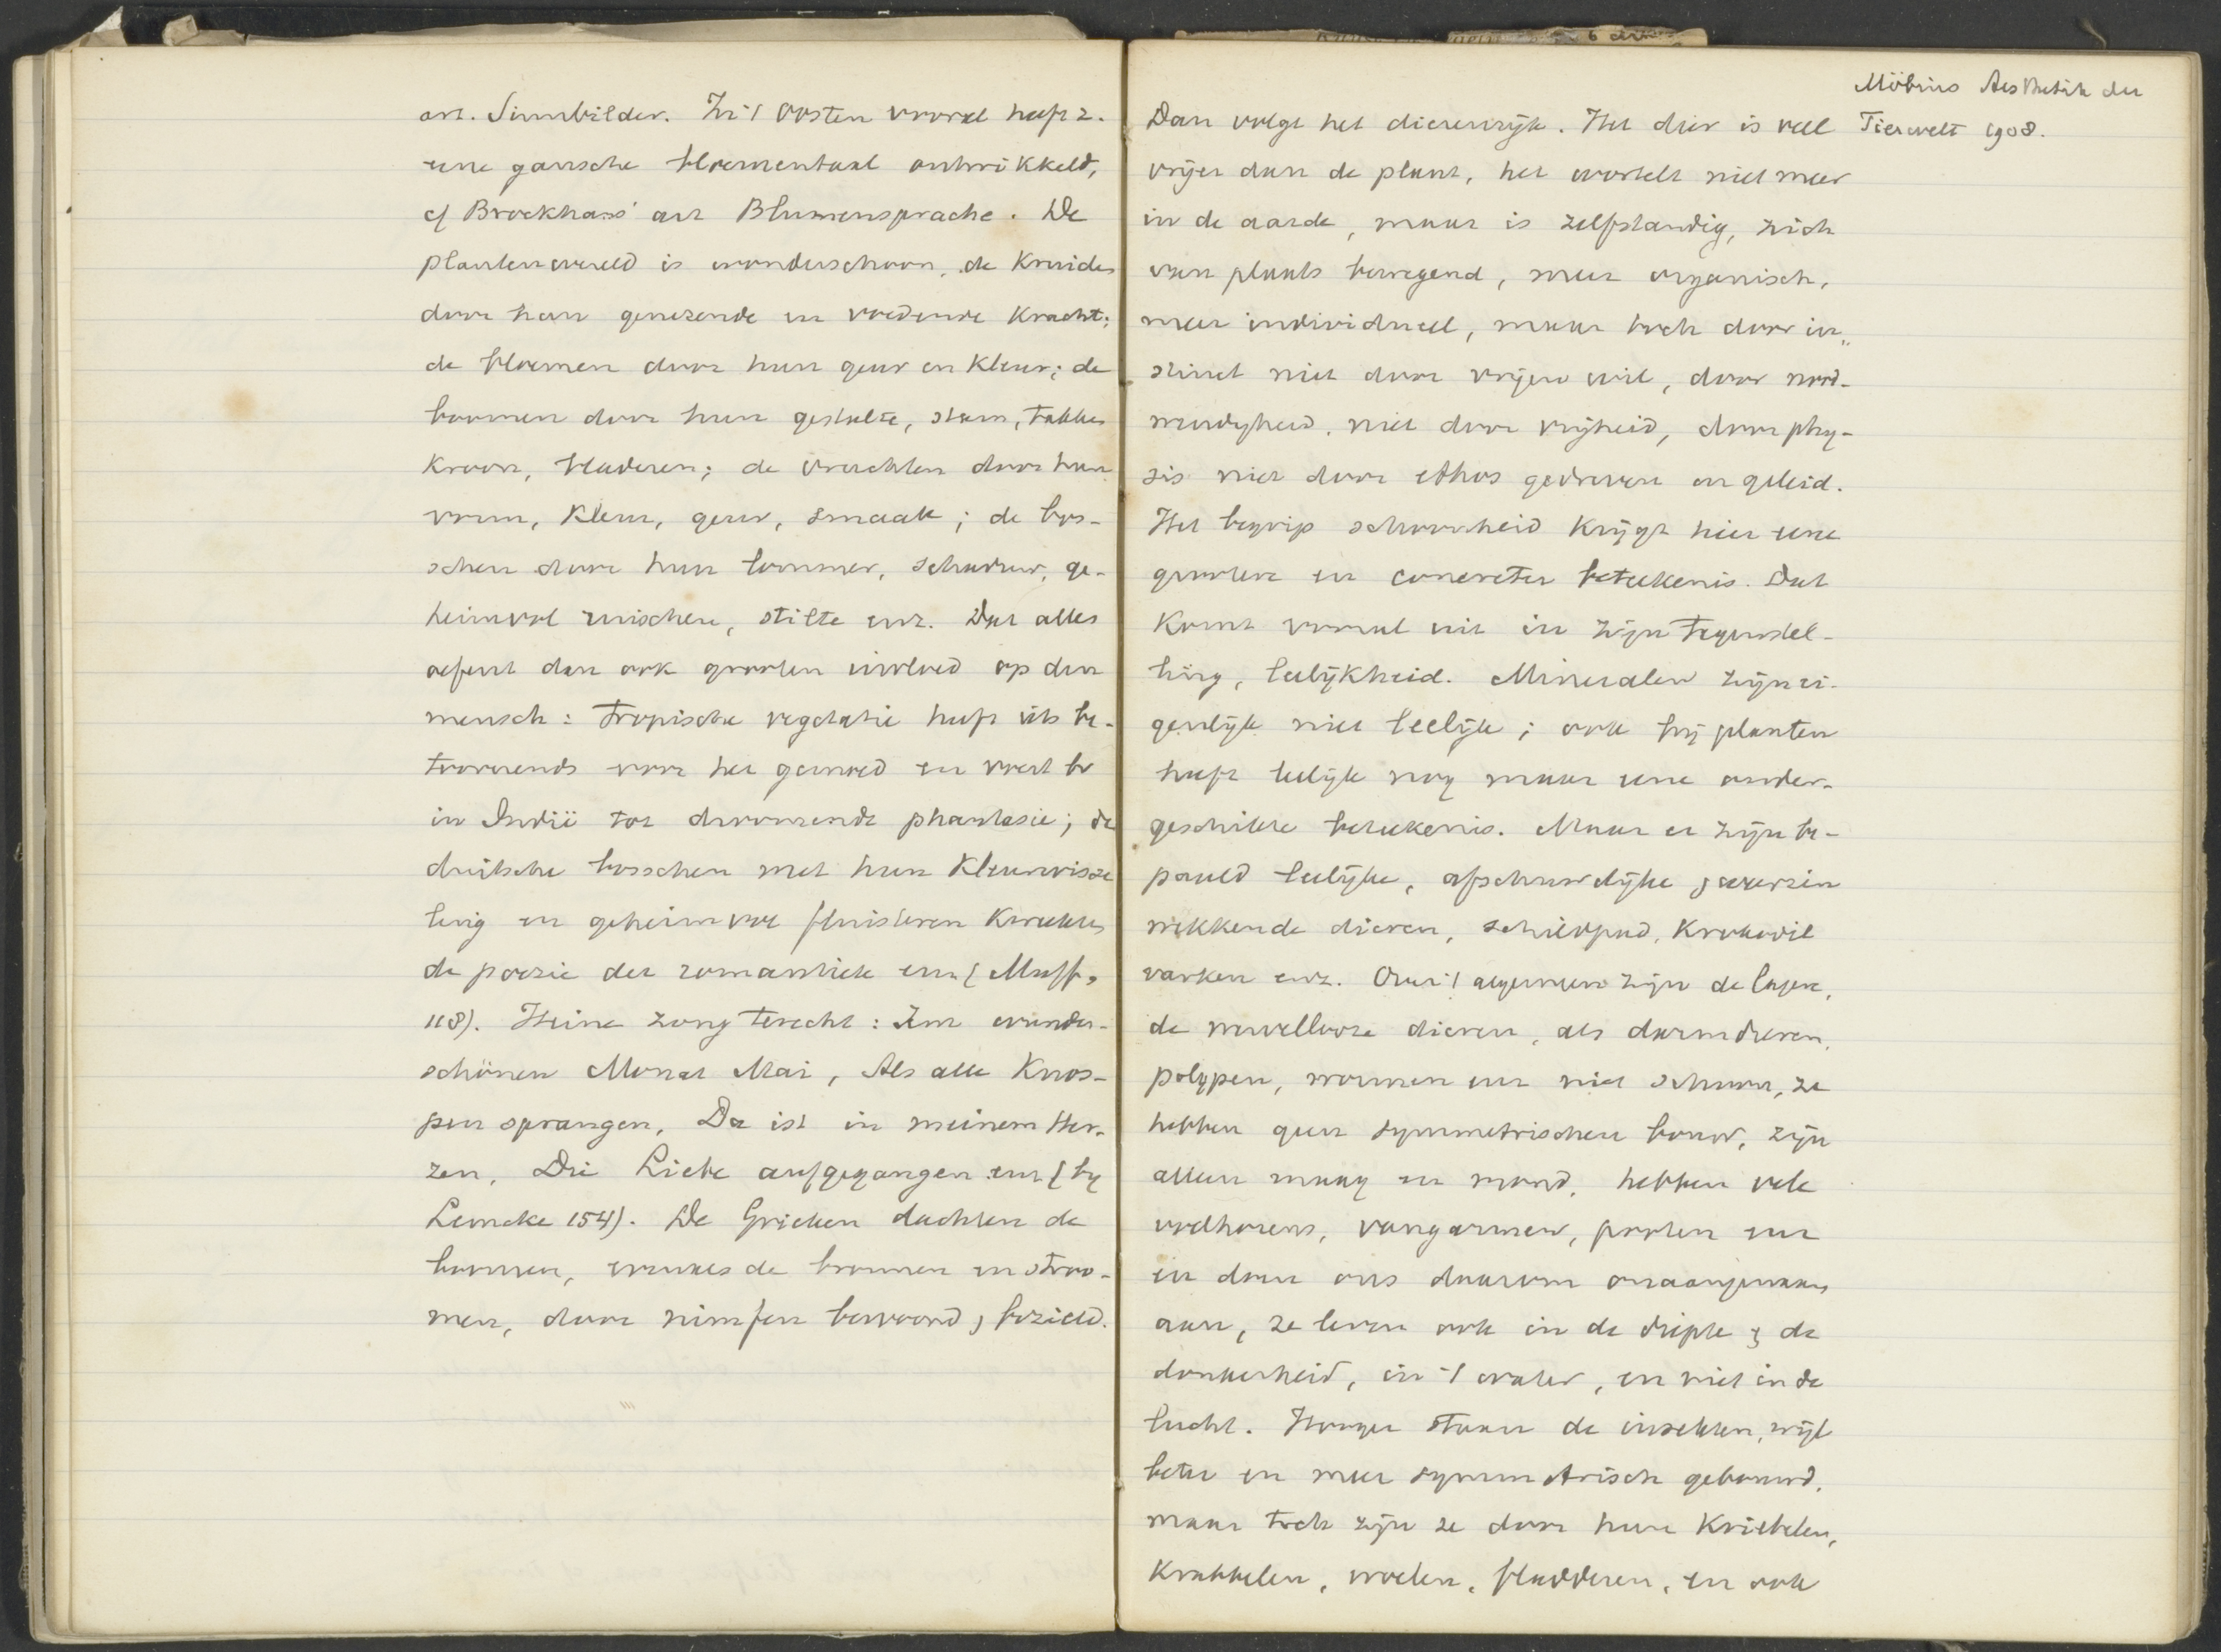 art. Sinnbilder. In 't Oosten vooral heeft z.
eene gansche bloementaal ontwikkeld,
cf Brockhaus' art Blumensprache. De
plantenwereld is wonderschoon, de Kruiden
door hun genezende en voedende Kracht;
de bloemen door hun geur en Kleur; de
boomen door hun gestalte, stam, takken
Kroon, bladeren; de vruchten door hun
vorm, Kleur, geur, smaak; de bos-
schen door hun lommer, schaduw, ge-
heimvol ruischen, stilte enz. Dat alles
oefent dan ook grooten invloed op den
mensch: tropische vegetatie heeft iets be-
tooverends voor het gemoed en voert bv
in Indië tot droomende phantasie; de
duitsche bosschen met hun Kleurwisse
ling en geheimvol fluisteren Kweekten
de poezie der romantiek enz (Muff,
118). Heine zong terecht: Im wunder-
schönen Monat Mai, Als alle Knos-
pen sprangen, Da ist in meinem Her-
zen, Die Liebe aufgegangen enz (bij
Lemcke 154). De Grieken dachten de
boomen, evenals de bronnen en stroo-
men, door nimfen bewoond, bezield.
Möbius Aesthetik der
Tierwelt 1908.
Dan volgt het dierenrijk. Het dier is veel
vrijer dan de plant, het wortelt niet meer
in de aarde, maar is zelfstandig, zich
van plaats bewegend, meer organisch,
meer individueel, maar toch door in„
stinct niet door vrijen wil, door nood-
wendigheid, niet door vrijheid, door phy-
sis niet door ethos gedreven en geleid.
Het begrip schoonheid Krijgt hier eene
grootere en concreter beteekenis. Dat
Komt vooral uit in zijn tegenstel-
ling, leelijkheid. Mineralen zijn ei-
genlijk niet leelijk; ook bij planten
heeft leelijk nog maar eene onder-
geschikte beteekenis. Maar er zijn be-
paald leelijke, afschuwelijke, weerzin
wekkende dieren, schildpad, Krokodil
varken enz. Over 't algemeen zijn de lagere,
de wervellooze dieren, als darmdieren,
polypen, wormen enz niet schoon, ze
hebben geen symmetrischen bouw, zijn
alleen maag en mond, hebben vele
voelhorens, vangarmen, pooten enz
en doen ons daarom onaangenaam
aan, ze leven ook in de diepte & de
donkerheid, in 't water, en niet in de
lucht. Hooger staan de insekten, wijl
beter en meer symmetrisch gebouwd,
maar toch zijn ze door hun Kriebelen,
Krabbelen, woelen, fladderen, en ook